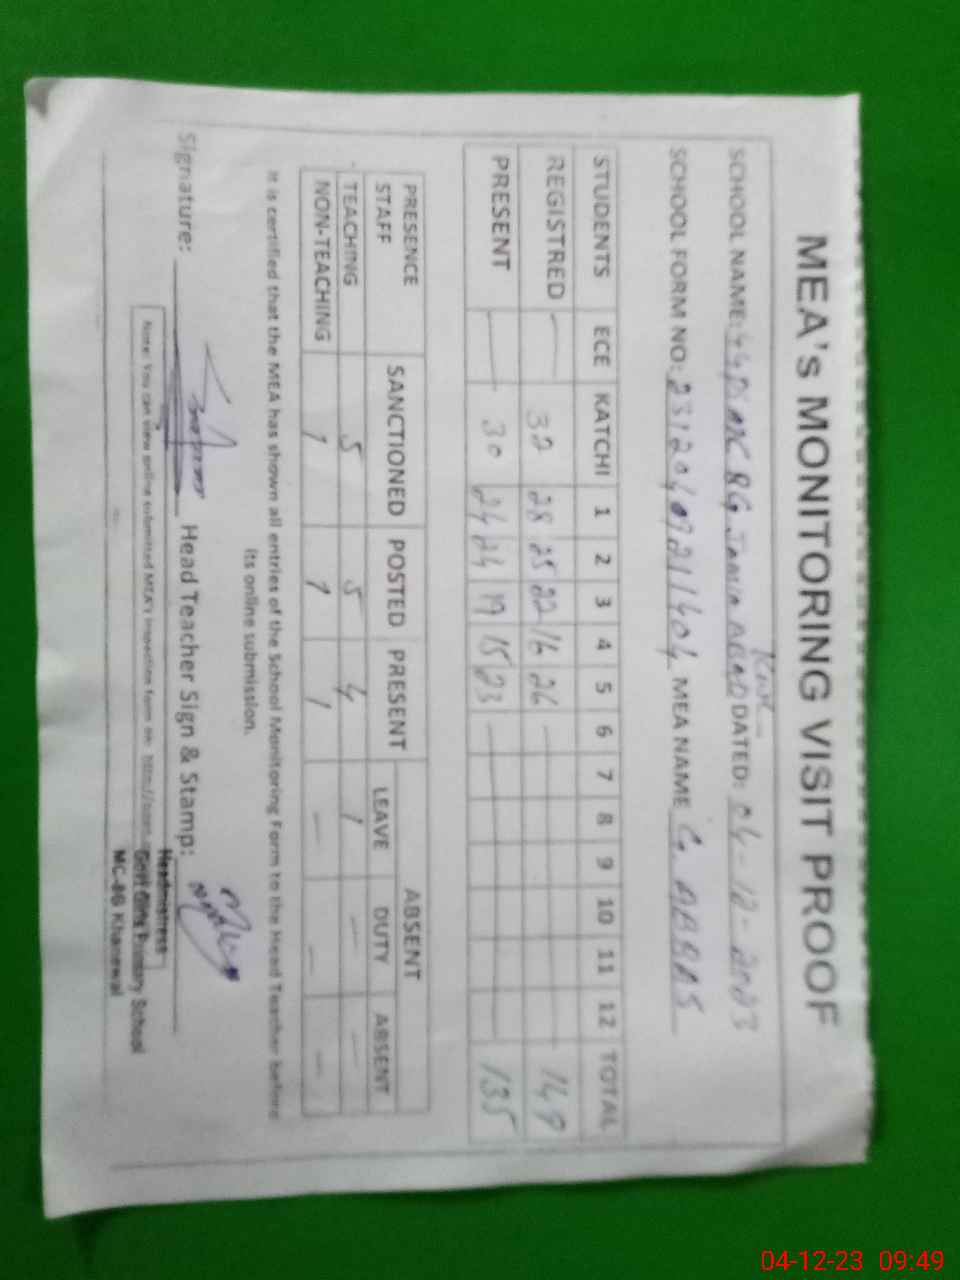 MEA's MONITORING VISIT PROOF
SCHOOL NAME: DATED: 04-12-2023
SCHOOL FORM NO: MEA NAME G. ABBAS
STUDENTS ECE KATCHI 1 2 3 4 5 6 7 8 9 10 11 12 TOTAL
REGISTRED — 32 28 25 22 16 26 — 149
PRESENT — 30 24 24 19 15 23 — 135
PRESENCE STAFF SANCTIONED POSTED PRESENT ABSENT
LEAVE DUTY ABSENT
TEACHING 5 5 4 1 — —
NON-TEACHING 1 1 1 — — —
It is certified that the MEA has shown all entries of the School Monitoring Form to the Head Teacher before
its online submission.
Signature: Head Teacher Sign & Stamp:
Note: You can view online submitted MEA's inspection form on: http://
Headmistress
Govt Girls Primary School
MC-86 Khanewal
04-12-23 09:49